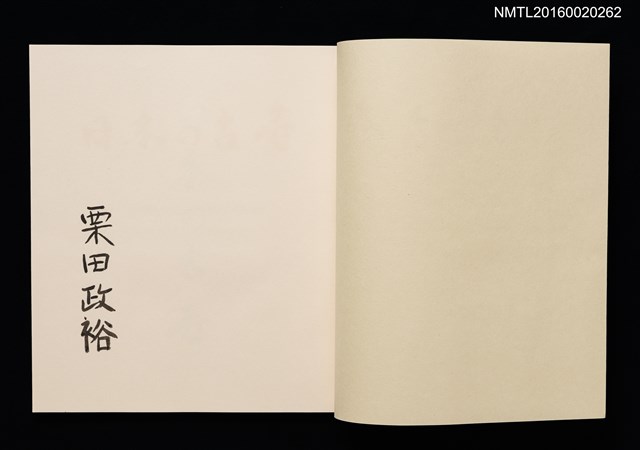 NMTL20160020262
栗田政裕